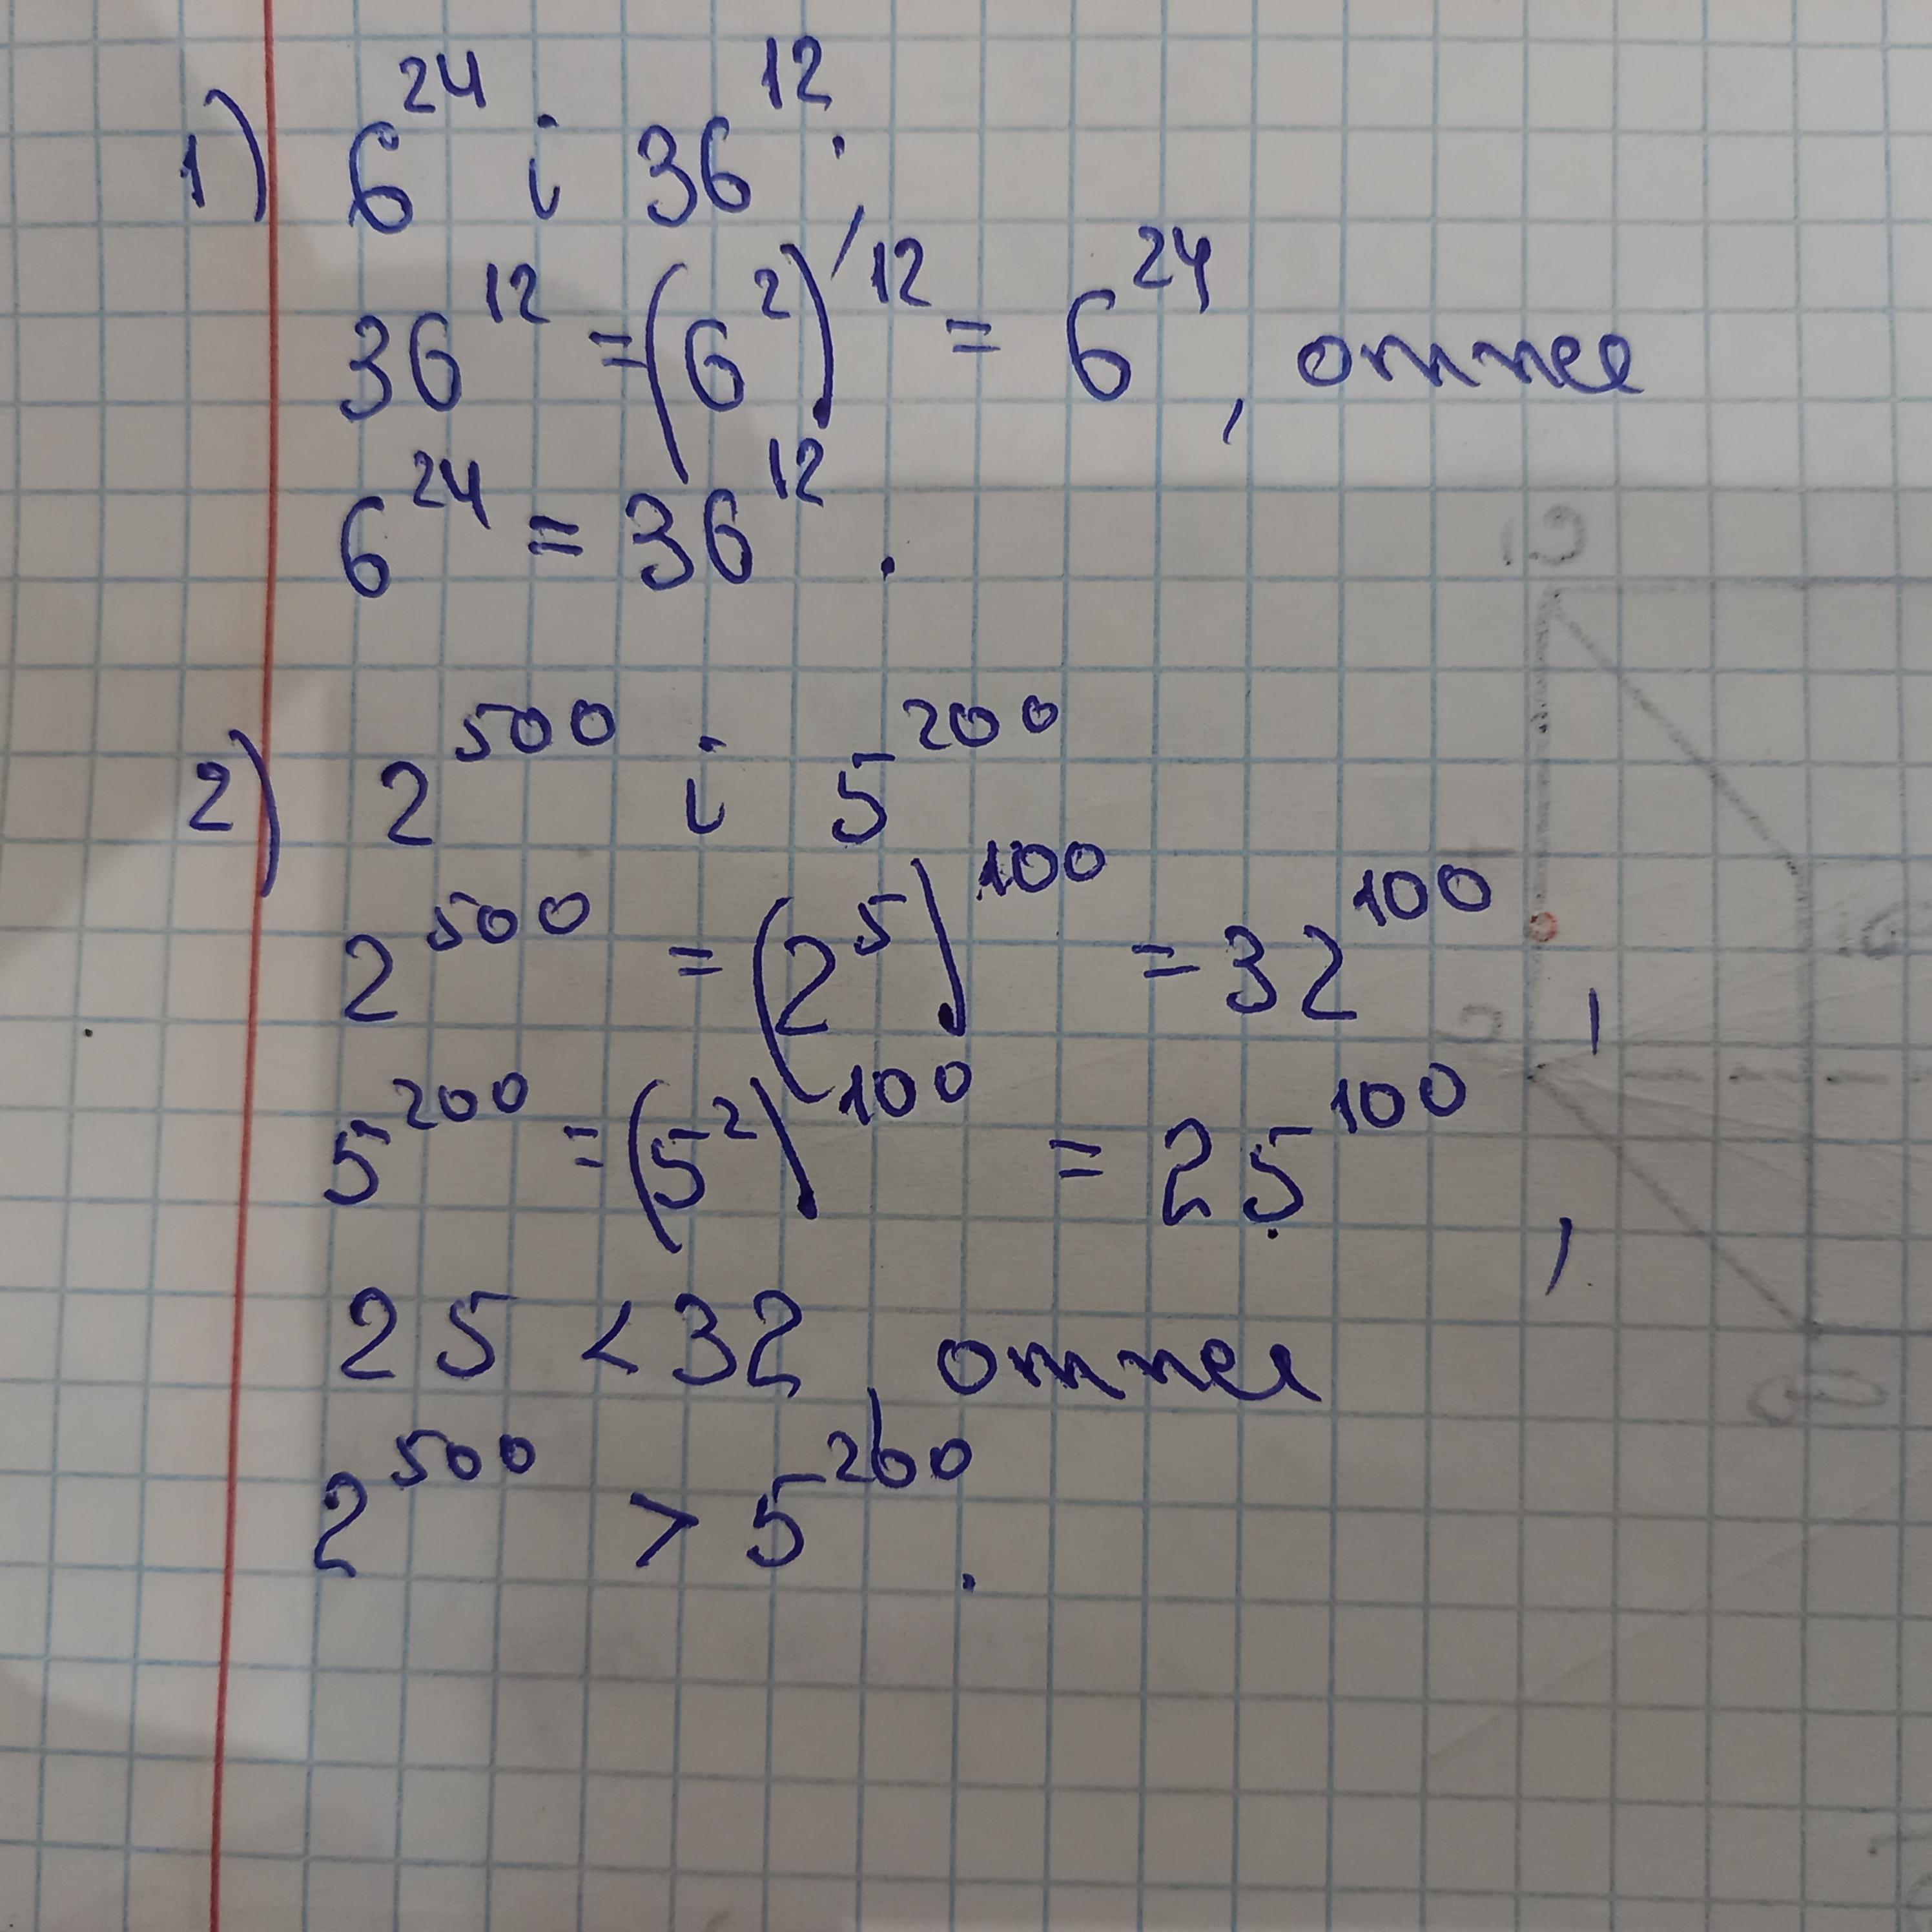 1) 6^24 і 36^12;
36^12 = (6^2)^12 = 6^24, отже
6^24 = 36^12.
2) 2^500 і 5^200
2^500 = (2^5)^100 = 32^100,
5^200 = (5^2)^100 = 25^100,
25 < 32, отже
2^500 > 5^200.